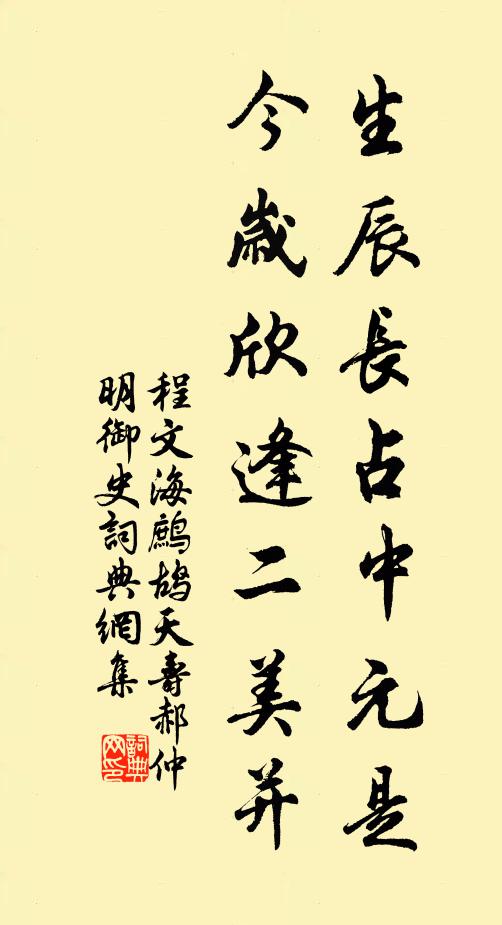 生辰長占中元是
今歲欣逢二美并
程文海鷓鴣天壽郝仲
明御史詞典網集
詞典
网印